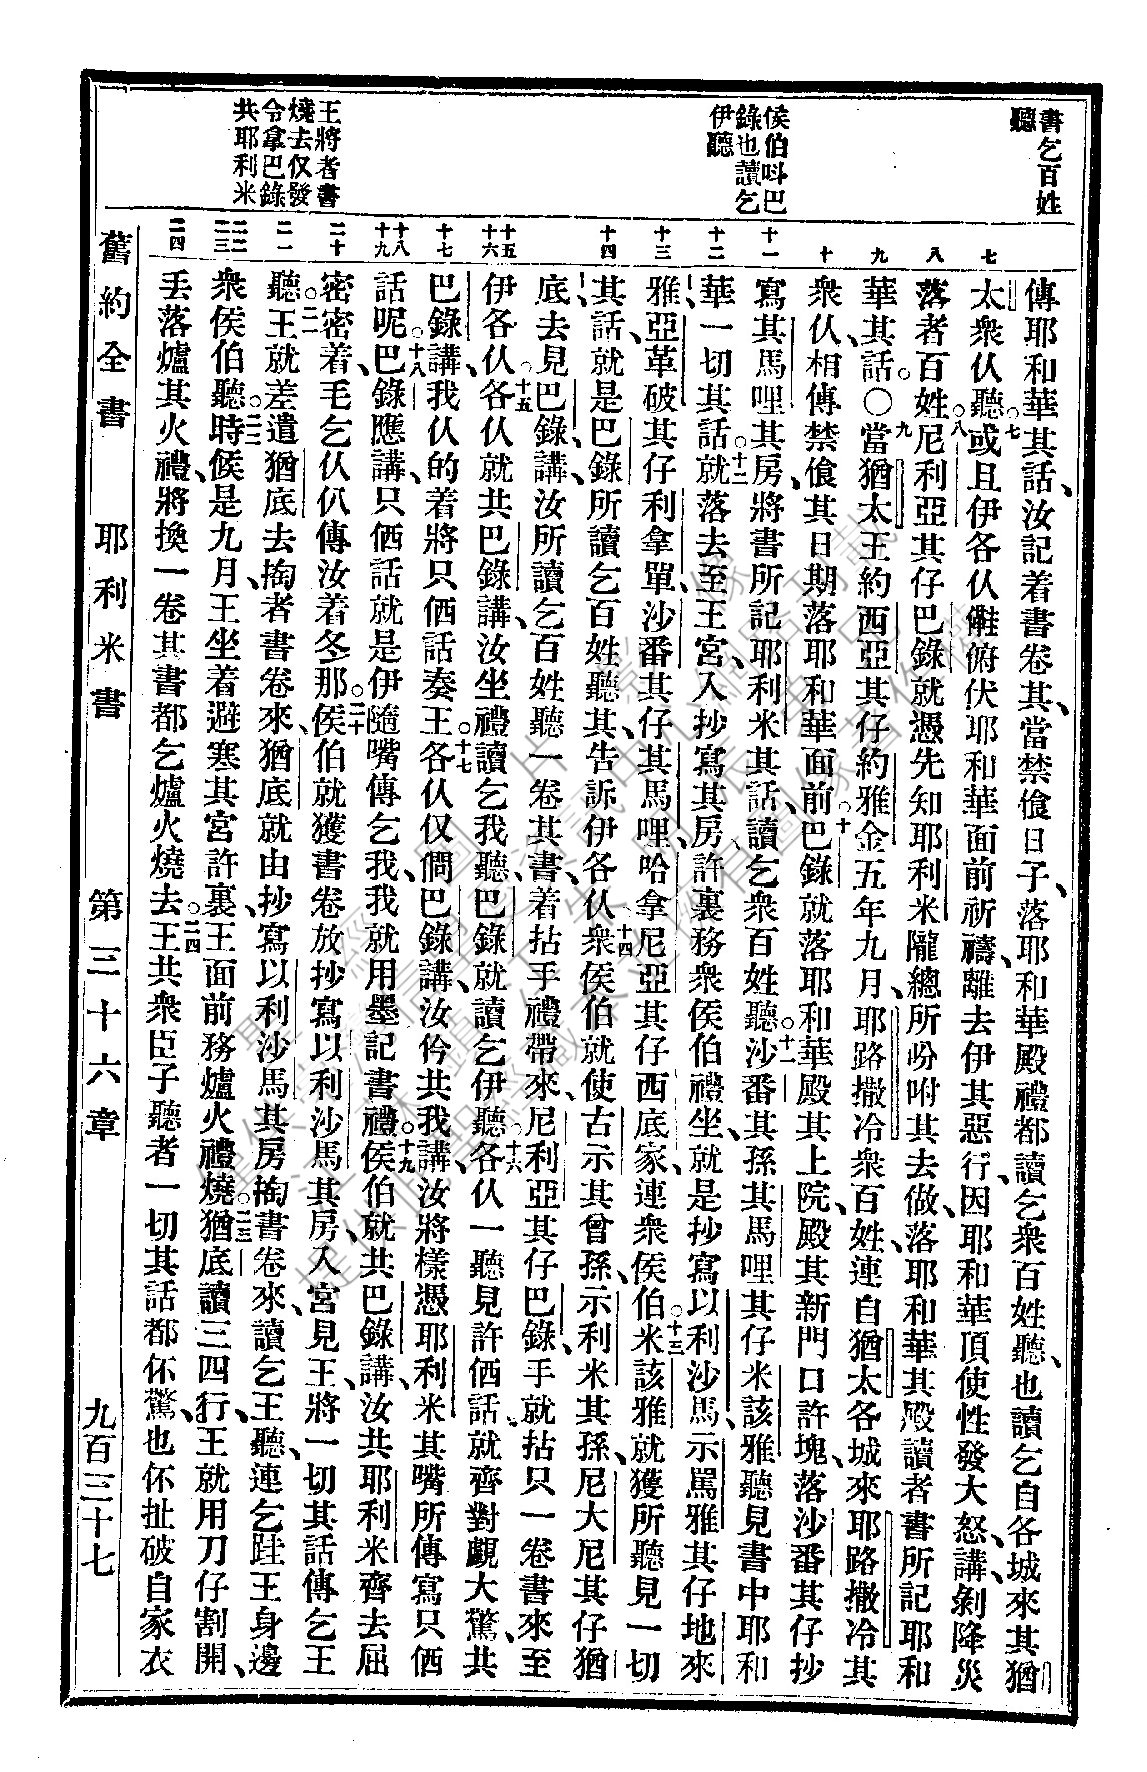 書乞百姓
聽
侯伯呌巴
錄也讀乞
伊聽
王將者書
燒去仅發
令拿巴錄
共耶利米
七
八
九
十
十一
十二
十三
十四
十五
十六
十七
十八
十九
二十
二一
二二
二三
二四
傳耶和華其話、汝記着書卷其、當禁飧日子、落耶和華殿禮都讀乞衆百姓聽、也讀乞自各城來其猶
太衆仈聽。八或且伊各仈俯伏耶和華面前祈禱、離去伊其惡行、因耶和華頂使性發大怒、講剝降災
落者百姓。九尼利亞其仔巴錄就憑先知耶利米隴總所吩咐其去做、落耶和華其殿讀者書所記耶和
華其話○當猶太王約西亞其仔約雅金五年九月、耶路撒冷衆百姓、連自猶太各城來耶路撒冷其
衆仈、相傳禁飧其日期落耶和華面前。十巴錄就落耶和華殿其上院、殿其新門口許塊、落沙番其仔抄
寫其馬哩其房、將書所記耶利米其話、讀乞衆百姓聽。十一沙番其孫其馬哩其仔米該雅聽見書中耶和
華一切其話。十二就落去至王宮、入抄寫其房、許裏務衆侯伯禮坐、就是抄寫以利沙馬、示罵雅其仔地來
雅、亞革破其仔利拿單、沙番其仔其馬哩、哈拿尼亞其仔西底家、連衆侯伯。十三米該雅就獲所聽見一切
其話、就是巴錄所讀乞百姓聽其、告訴伊各仈。十四衆侯伯就使古示其曾孫、示利米其孫、尼大尼其仔猶
底去見巴錄、講、汝所讀乞百姓聽一卷其書、着拈手禮帶來、尼利亞其仔巴錄、手就拈只一卷書來至
伊各仈。十五各仈就共巴錄講、汝坐禮讀乞我聽、巴錄就讀乞伊聽。十六各仈一聽見許伵話、就齊對覷大驚、共
巴錄講、我仈的着將只伵話奏王。十七各仈仅問巴錄講、汝仱共我講、汝將樣憑耶利米其嘴所傳寫只伵
話呢。十八巴錄應講、只伵話就是伊隨嘴傳乞我、我就用墨記書禮。十九侯伯就共巴錄講、汝共耶利米齊去屈
密密着、毛乞仈仈傳汝着冬那。二十侯伯就獲書卷放抄寫以利沙馬其房、入宮見王、將一切其話傳乞王
聽。二一王就差遣猶底去掏者書卷來、猶底就由抄寫以利沙馬其房掏書卷來、讀乞王聽、連乞跬王身邊
衆侯伯聽。二二時候是九月、王坐着避寒其宮許裏、王面前務爐火禮燒。二三猶底讀三四行、王就用刀仔割開、
丢落爐其火禮、將換一卷其書都乞爐火燒去。二四王共衆臣子聽者一切其話、都伓驚、也伓扯破自家衣
舊約全書　耶利米書　第三十六章　九百三十七